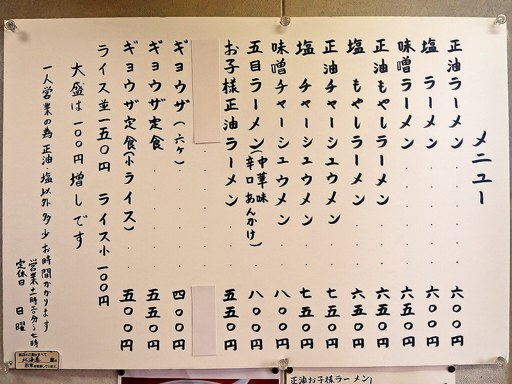 メニュー
正油ラーメン 六〇〇円
塩ラーメン 六〇〇円
味噌ラーメン 六五〇円
正油もやしラーメン 六五〇円
塩もやしラーメン 六五〇円
正油チャーシュウメン 七五〇円
塩チャーシュウメン 七五〇円
味噌チャーシュウメン 八〇〇円
五目ラーメン(中華味 辛口あんかけ) 八〇〇円
お子様正油ラーメン 五五〇円
ギョウザ(六ケ) 四〇〇円
ギョウザ定食 五五〇円
ギョウザ定食(小ライス) 五〇〇円
ライス並一五〇円 ライス小一〇〇円
大盛は一〇〇円増しです
一人営業の為正油、塩以外多少お時間かかります
営業十一時三〇分〜七時
定休日 日曜
正油お子様ラーメン